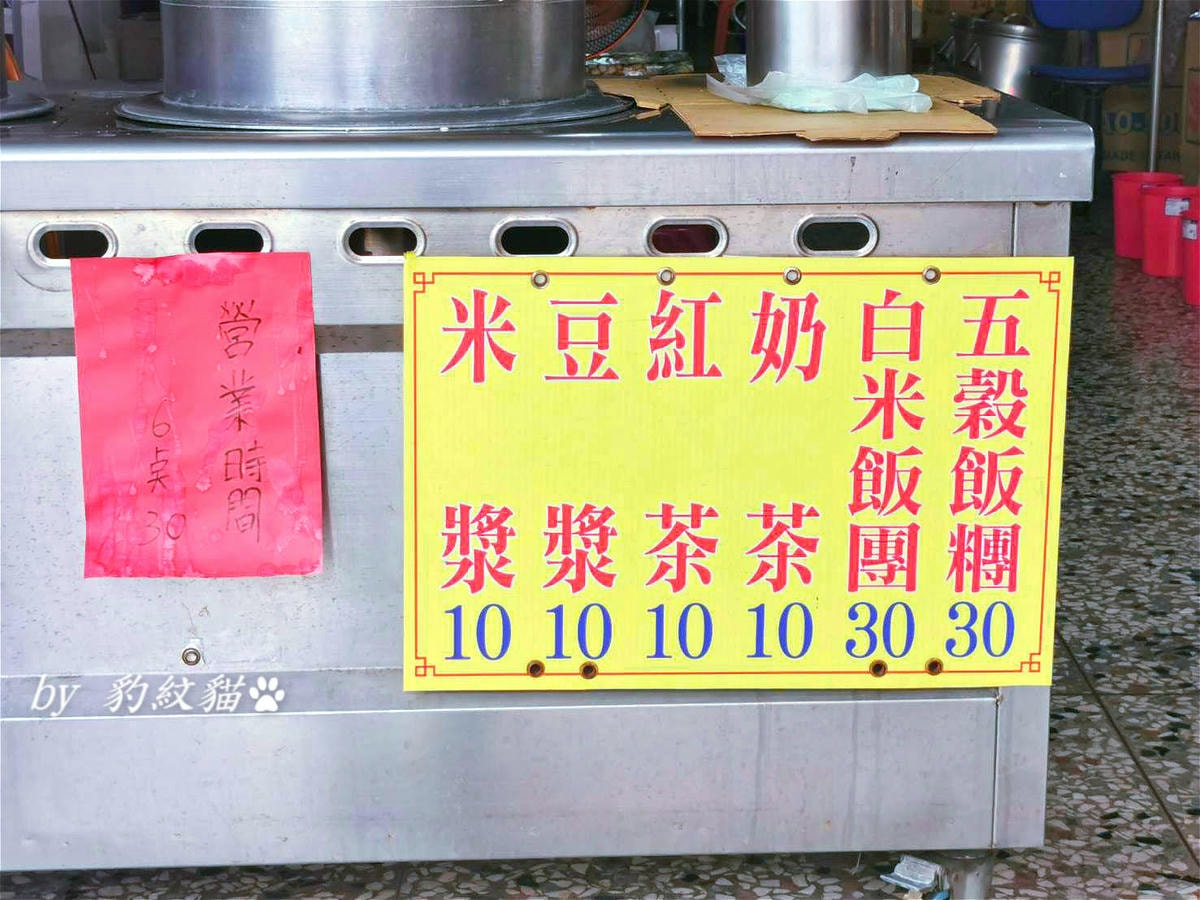 五穀飯糰 30
白米飯團 30
奶茶 10
紅茶 10
豆漿 10
米漿 10
營業時間
6点30
by 豹紋貓